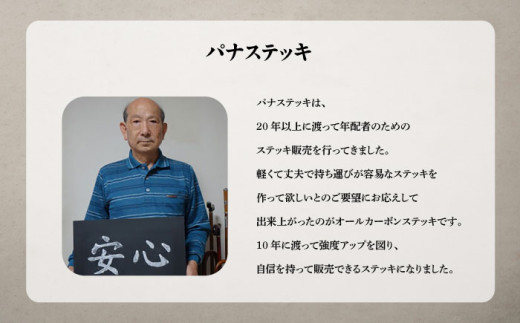 パナステッキ
パナステッキは、
20年以上に渡って年配者のための
ステッキ販売を行ってきました。
軽くて丈夫で持ち運びが容易なステッキを
作って欲しいとのご要望にお応えして
出来上がったのがオールカーボンステッキです。
10年に渡って強度アップを図り、
自信を持って販売できるステッキになりました。
安心